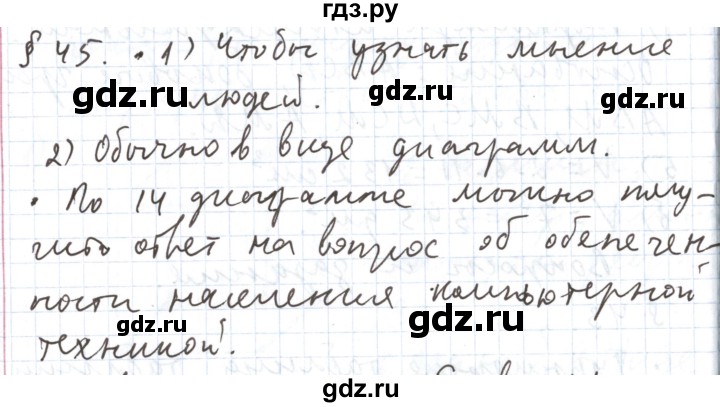 гдз.ру
§ 45. • 1) Чтобы узнать мнение
gdz.ru людей. gdz.ru gdz.ru
2) Обычно в виде диаграмм.
• По 14 диаграмме можно полу-
gdz.ru gdz.ru
чить ответ на вопрос об обепечен-
ности населения компьютерной
gdz.ru gdz.ru
техникой.
gdz.ru